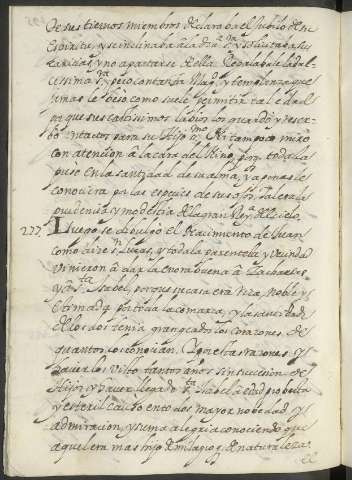 de sus tiernos miembros declaraba el jubilo de su
Espiritu, y se inclinaba a la diuina Sra. y solicitaba sus
caricias y no apartarse de ella. Regalabale la dul-
cissima Sra., pero con tanta Magd. y templança que
jamas le beso como suele permitir tal edad
porque sus castissimos labios los guardó y reser-
bó intactos para su Hijo SSmo. Ni tampoco miro
con atencion a la cara del Niño, porq. toda la
puso en la santidad de su alma, y apenas le
conociera por las especies de sus ojos. Tal era la
prudencia y modestia de la gran Reyna del cielo.
277. Luego se diuulgo el Nacimiento de Juan
como dize Sn. Lucas, y toda la parentela y vecindad
vinieron a dar la enorabuena a Zacharias
y Sta. Isabel, porque su casa era rica, noble y
estimada por toda la comarca, y la santidad
de los dos tenia grangeados los coraçones de
quantos los conocian. Y por estas raçones y
hauer los visto tantos años sin succesion de
Hijos y hauer llegado Sta. Isabel a edad probecta
y esteril causó en todos mayor nobedad y
admiracion, y suma alegria conociendo que
aquel era mas hijo de milagro q. de naturaleza.
El